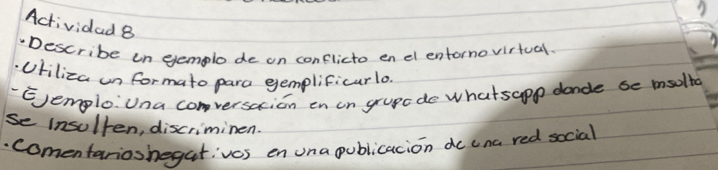 Actividad 8
·Describe un ejemplo de un conflicto en el entorno virtual.
·Utiliza un formato para ejemplificarlo.
-Ejemplo: Una conversación en un grupo de whatsapp donde se insulta
se insulten, discriminen.
·comentarios negativos en una publicación de una red social